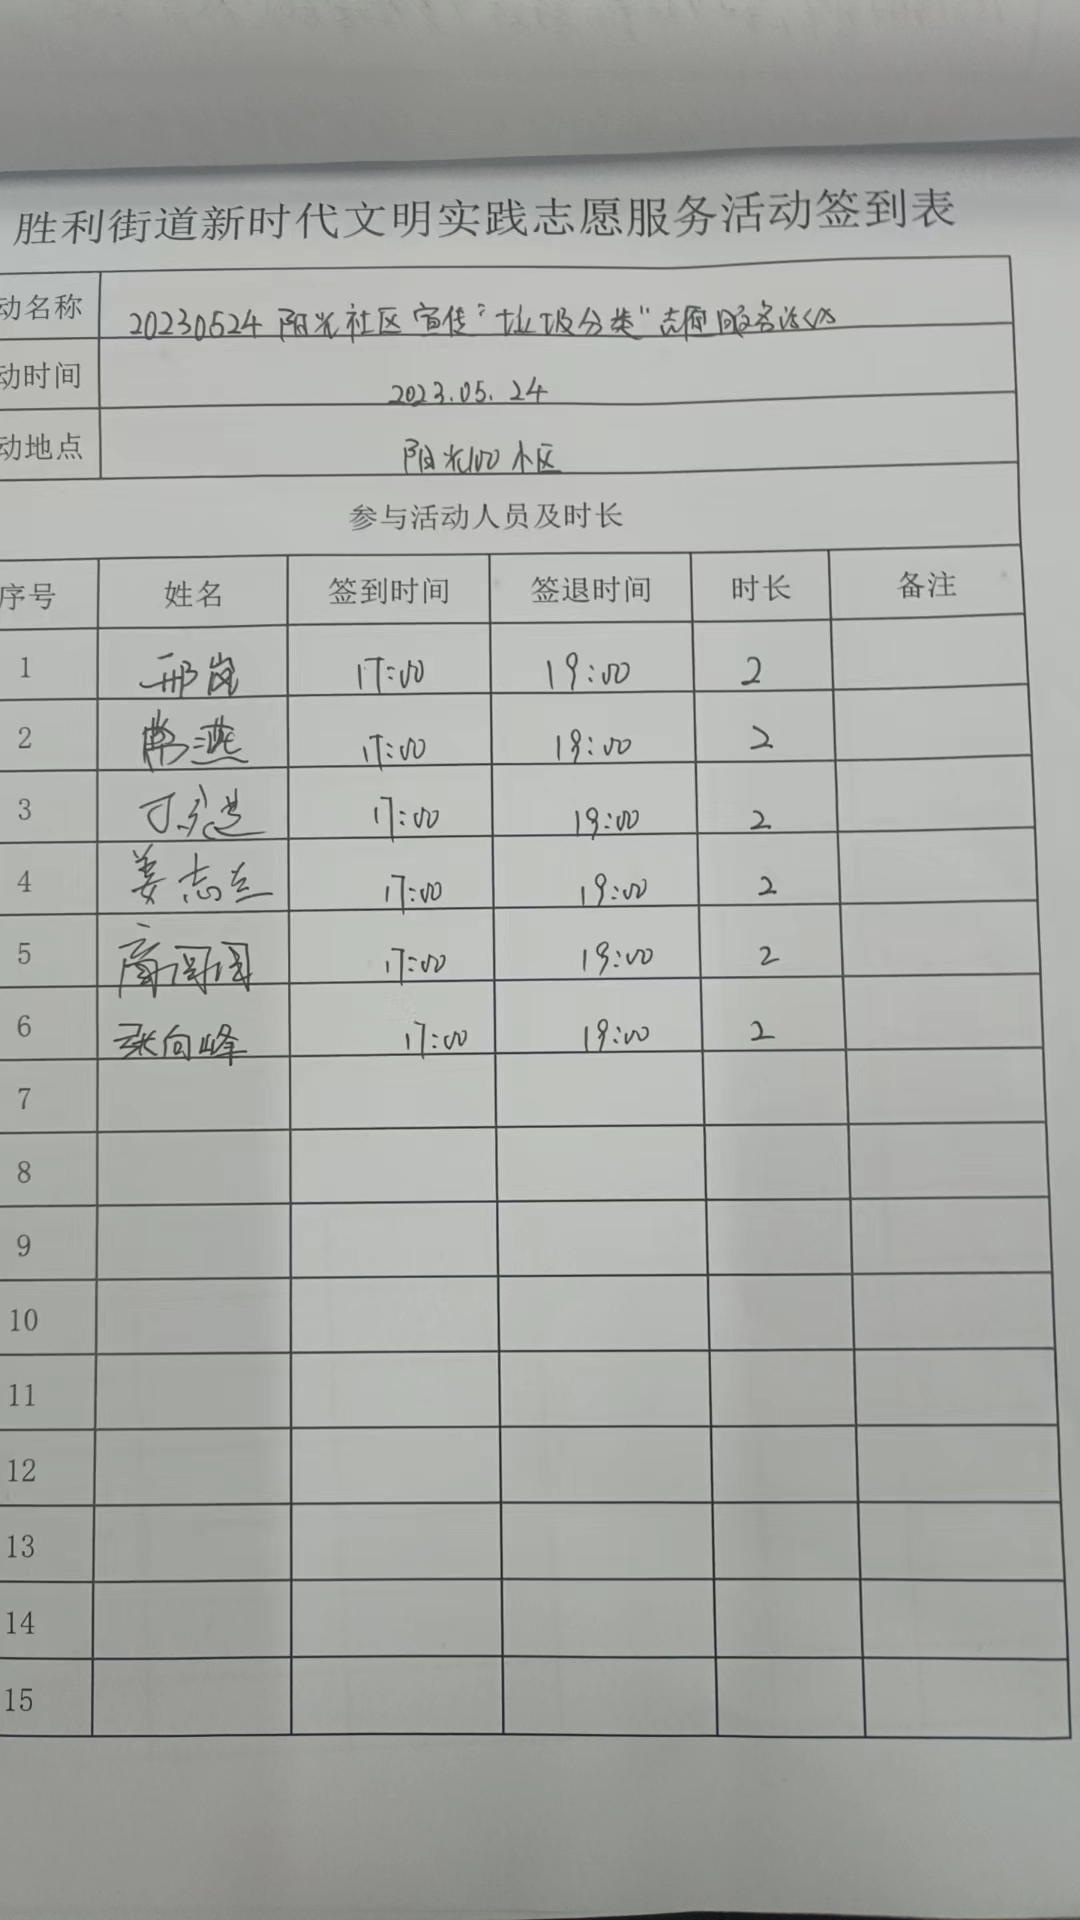 胜利街道新时代文明实践志愿服务活动签到表
动名称 20230524 阳光社区宣传"垃圾分类"志愿服务活动
动时间 2023.05.24
动地点 阳光100小区
参与活动人员及时长
序号 姓名 签到时间 签退时间 时长 备注
1 邢岚 17:00 19:00 2
2 常燕 17:00 19:00 2
3 17:00 19:00 2
4 姜志兰 17:00 19:00 2
5 17:00 19:00 2
6 张向峰 17:00 19:00 2
7
8
9
10
11
12
13
14
15